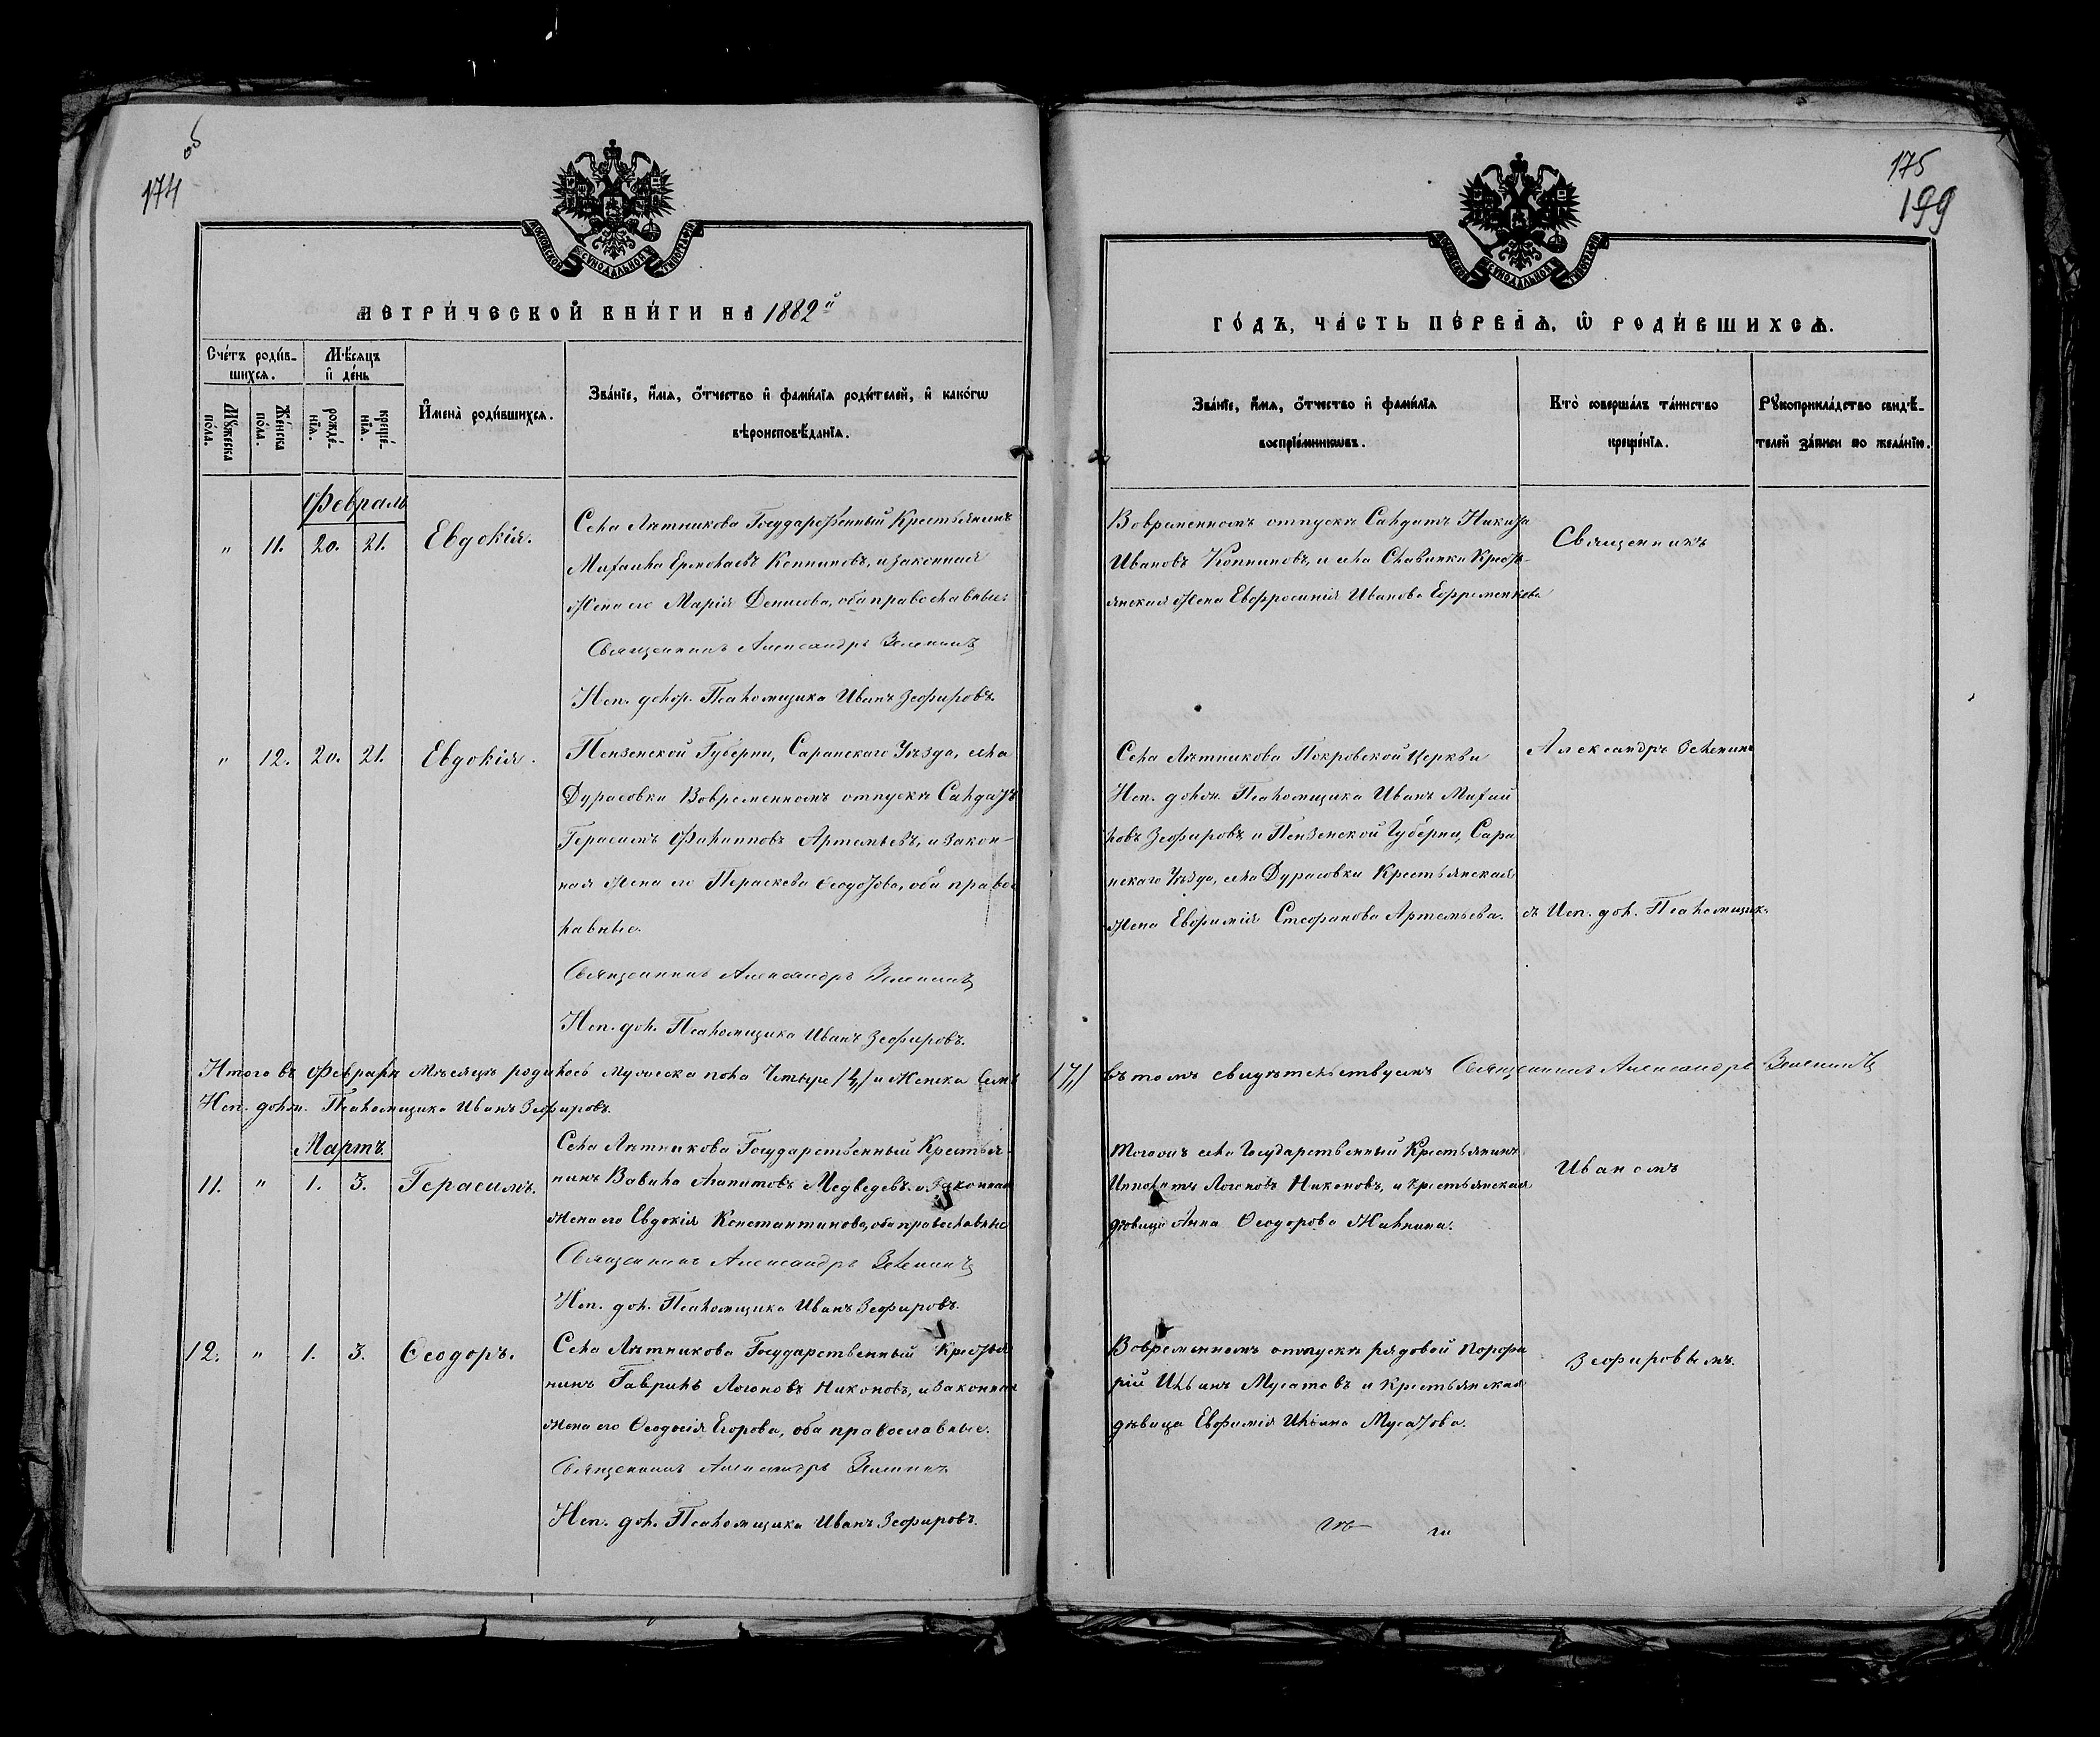 174 об
МОСКОВСКОЙ СѴНОДАЛЬНОЙ ТИПОГРАФІИ
МЕТРИ́ЧЕСКОЙ КНИ́ГИ НА 1882й
Сче́тъ роди́в-
шихся.
Мѣ́сяцъ
и҆ де́нь
Мꙋ́жеска
по́ла.
Же́нска
по́ла.
рожде́-
нїѧ.
креще́-
нїѧ.
И҆мена̀ роди́вшихсѧ.
Зва́нїе, и҆́мѧ, ѻ҆́тчество и҆ фами́лїѧ роди́телей, и҆ како́гѡ
вѣроисповѣ́данїѧ.
Февраль
" 11. 20. 21. Евдокія.
Села Лѣтникова Государственный Крестьянинъ
Михаила Ермолаевъ Коппиновъ, и законная
Жена его Марія Денисова, оба православные.
Священникъ Александръ Зеленинъ
Исп. долж. Псаломщика Иванъ Зефировъ.
" 12. 20. 21. Евдокія.
Пензенской Губерни, Саранскаго Уѣзда, села
Дурасовки Вовременномъ отпускѣ Салдатъ
Герасимъ Филипповъ Артемьевъ, и закон-
ная жена его Параскева Ѳеодотова, оба правос
лавные.
Священникъ Александръ Зеленинъ
Исп. дол. Псаломщика Иванъ Зефировъ.
Итого въ Февралѣ Мѣсяцѣ родилось Мужеска пола Четыре /4/ и Женска Семь
Исп. долж. Псаломщика Иванъ Зефировъ.
Мартъ.
11. " 1. 3. Герасимъ.
Села Лѣтникова Государственный Крестья-
нинъ Вавила Капитовъ Медведевъ и законная
жена его Евдокія Константинова, оба православные
Священникъ Александръ Зеленинъ
Исп. дол. Псаломщика Иванъ Зефировъ.
12. " 1. 3. Ѳеодоръ.
Села Лѣтникова Государственный Крестья
нинъ Гаврилъ Логоновъ Никоновъ, и законная
жена его Ѳеодосія Егорова, оба православные.
Священникъ Александръ Зеленинъ
Исп. дол. Псаломщика Иванъ Зефировъ.
175
199
МОСКОВСКОЙ СѴНОДАЛЬНОЙ ТИПОГРАФІИ
ГО́ДЪ, ЧА́СТЬ ПЕ́РВАѦ, Ѡ҆ РОДИ́ВШИХСѦ.
Зва́нїе, и҆́мѧ, ѻ҆́тчество и҆ фами́лїѧ
воспрїе́мникѡвъ.
Кто̀ соверша́лъ та́инство
креще́нїѧ.
Рꙋкоприкла́дство свидѣ́-
телей за́писи по жела́нїю.
Вовременномъ отпускѣ Салдатъ Никита
Ивановъ Коппиновъ, и села Славинки Кресть-
янская Жена Евфросинія Иванова Ефременкова
Священникъ
Села Лѣтникова Покровской Церкви
Исп. долж. Псаломщика Иванъ Михай
ловъ Зефировъ и Пензенской Губерни, Сара
нскаго Уѣзда, села Дурасовки Крестьянская
Жена Евфимія Стефанова Артемьева.
Александръ Зеленинъ
съ Исп. дол. Псаломщик.
/7/ въ томъ свидѣтельствуемъ Священникъ Александръ Зеленинъ
Тогожъ села Государственный Крестьянинъ
Ипполитъ Логоновъ Никоновъ, и крестьянская
дѣвица Анна Ѳеодорова Жилкина.
Иваномъ
Вовременномъ отпускѣ рядовой Порфи
рій Ильинъ Мусатовъ и крестьянская
дѣвица Евфимія Ильина Мусатова.
Зефировымъ.